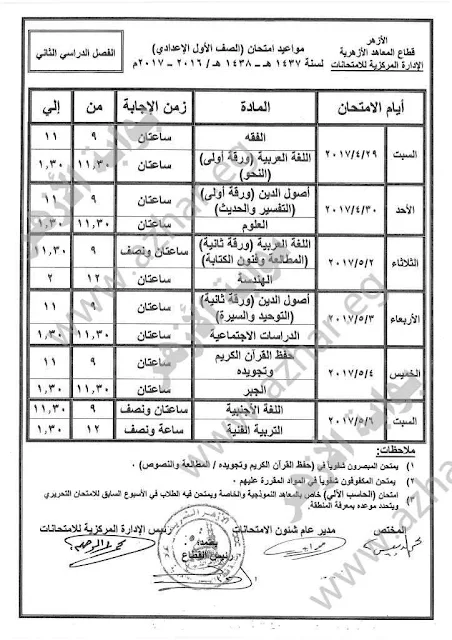 الأزهر
قطاع المعاهد الأزهرية
الإدارة المركزية للامتحانات
مواعيد امتحان (الصف الأول الإعدادي)
لسنة ١٤٣٧ هـ – ١٤٣٨ هـ / ٢٠١٦ – ٢٠١٧م
الفصل الدراسي الثاني
أيام الامتحان المادة زمن الإجابة من إلي
السبت ٢٠١٧/٤/٢٩ الفقه ساعتان ٩ ١١
اللغة العربية (ورقة أولى) (النحو) ساعتان ١١,٣٠ ١,٣٠
الأحد ٢٠١٧/٤/٣٠ أصول الدين (ورقة أولى) (التفسير والحديث) ساعتان ٩ ١١
العلوم ساعتان ١١,٣٠ ١,٣٠
الثلاثاء ٢٠١٧/٥/٢ اللغة العربية (ورقة ثانية) (المطالعة وفنون الكتابة) ساعتان ونصف ٩ ١١,٣٠
الهندسة ساعتان ١٢ ٢
الأربعاء ٢٠١٧/٥/٣ أصول الدين (ورقة ثانية) (التوحيد والسيرة) ساعتان ٩ ١١
الدراسات الاجتماعية ساعتان ١١,٣٠ ١,٣٠
الخميس ٢٠١٧/٥/٤ حفظ القرآن الكريم وتجويده ساعتان ٩ ١١
الجبر ساعتان ١١,٣٠ ١,٣٠
السبت ٢٠١٧/٥/٦ اللغة الأجنبية ساعتان ونصف ٩ ١١,٣٠
التربية الفنية ساعة ونصف ١٢ ١,٣٠
ملاحظات:
١) يمتحن المبصرون شفوياً في (حفظ القرآن الكريم وتجويده / المطالعة والنصوص) ٠
٢) يمتحن المكفوفون شفوياً في المواد المقررة عليهم ٠
٣) امتحان (الحاسب الآلي) خاص بالمعاهد النموذجية والخاصة ويمتحن فيه الطلاب في الأسبوع السابق للامتحان التحريري
ويتحدد موعده بمعرفة المنطقة.
المختص مدير عام شئون الامتحانات رئيس الإدارة المركزية للامتحانات
يعتمد؛
رئيس القطاع
بوابة الأزهر
www.azhar.eg